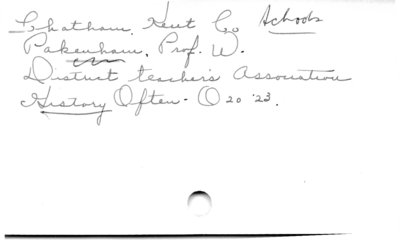 Chatham, Kent Co Schools
Pakenham, Prof. W.
District teacher's Association
History Often - O 20 '23.